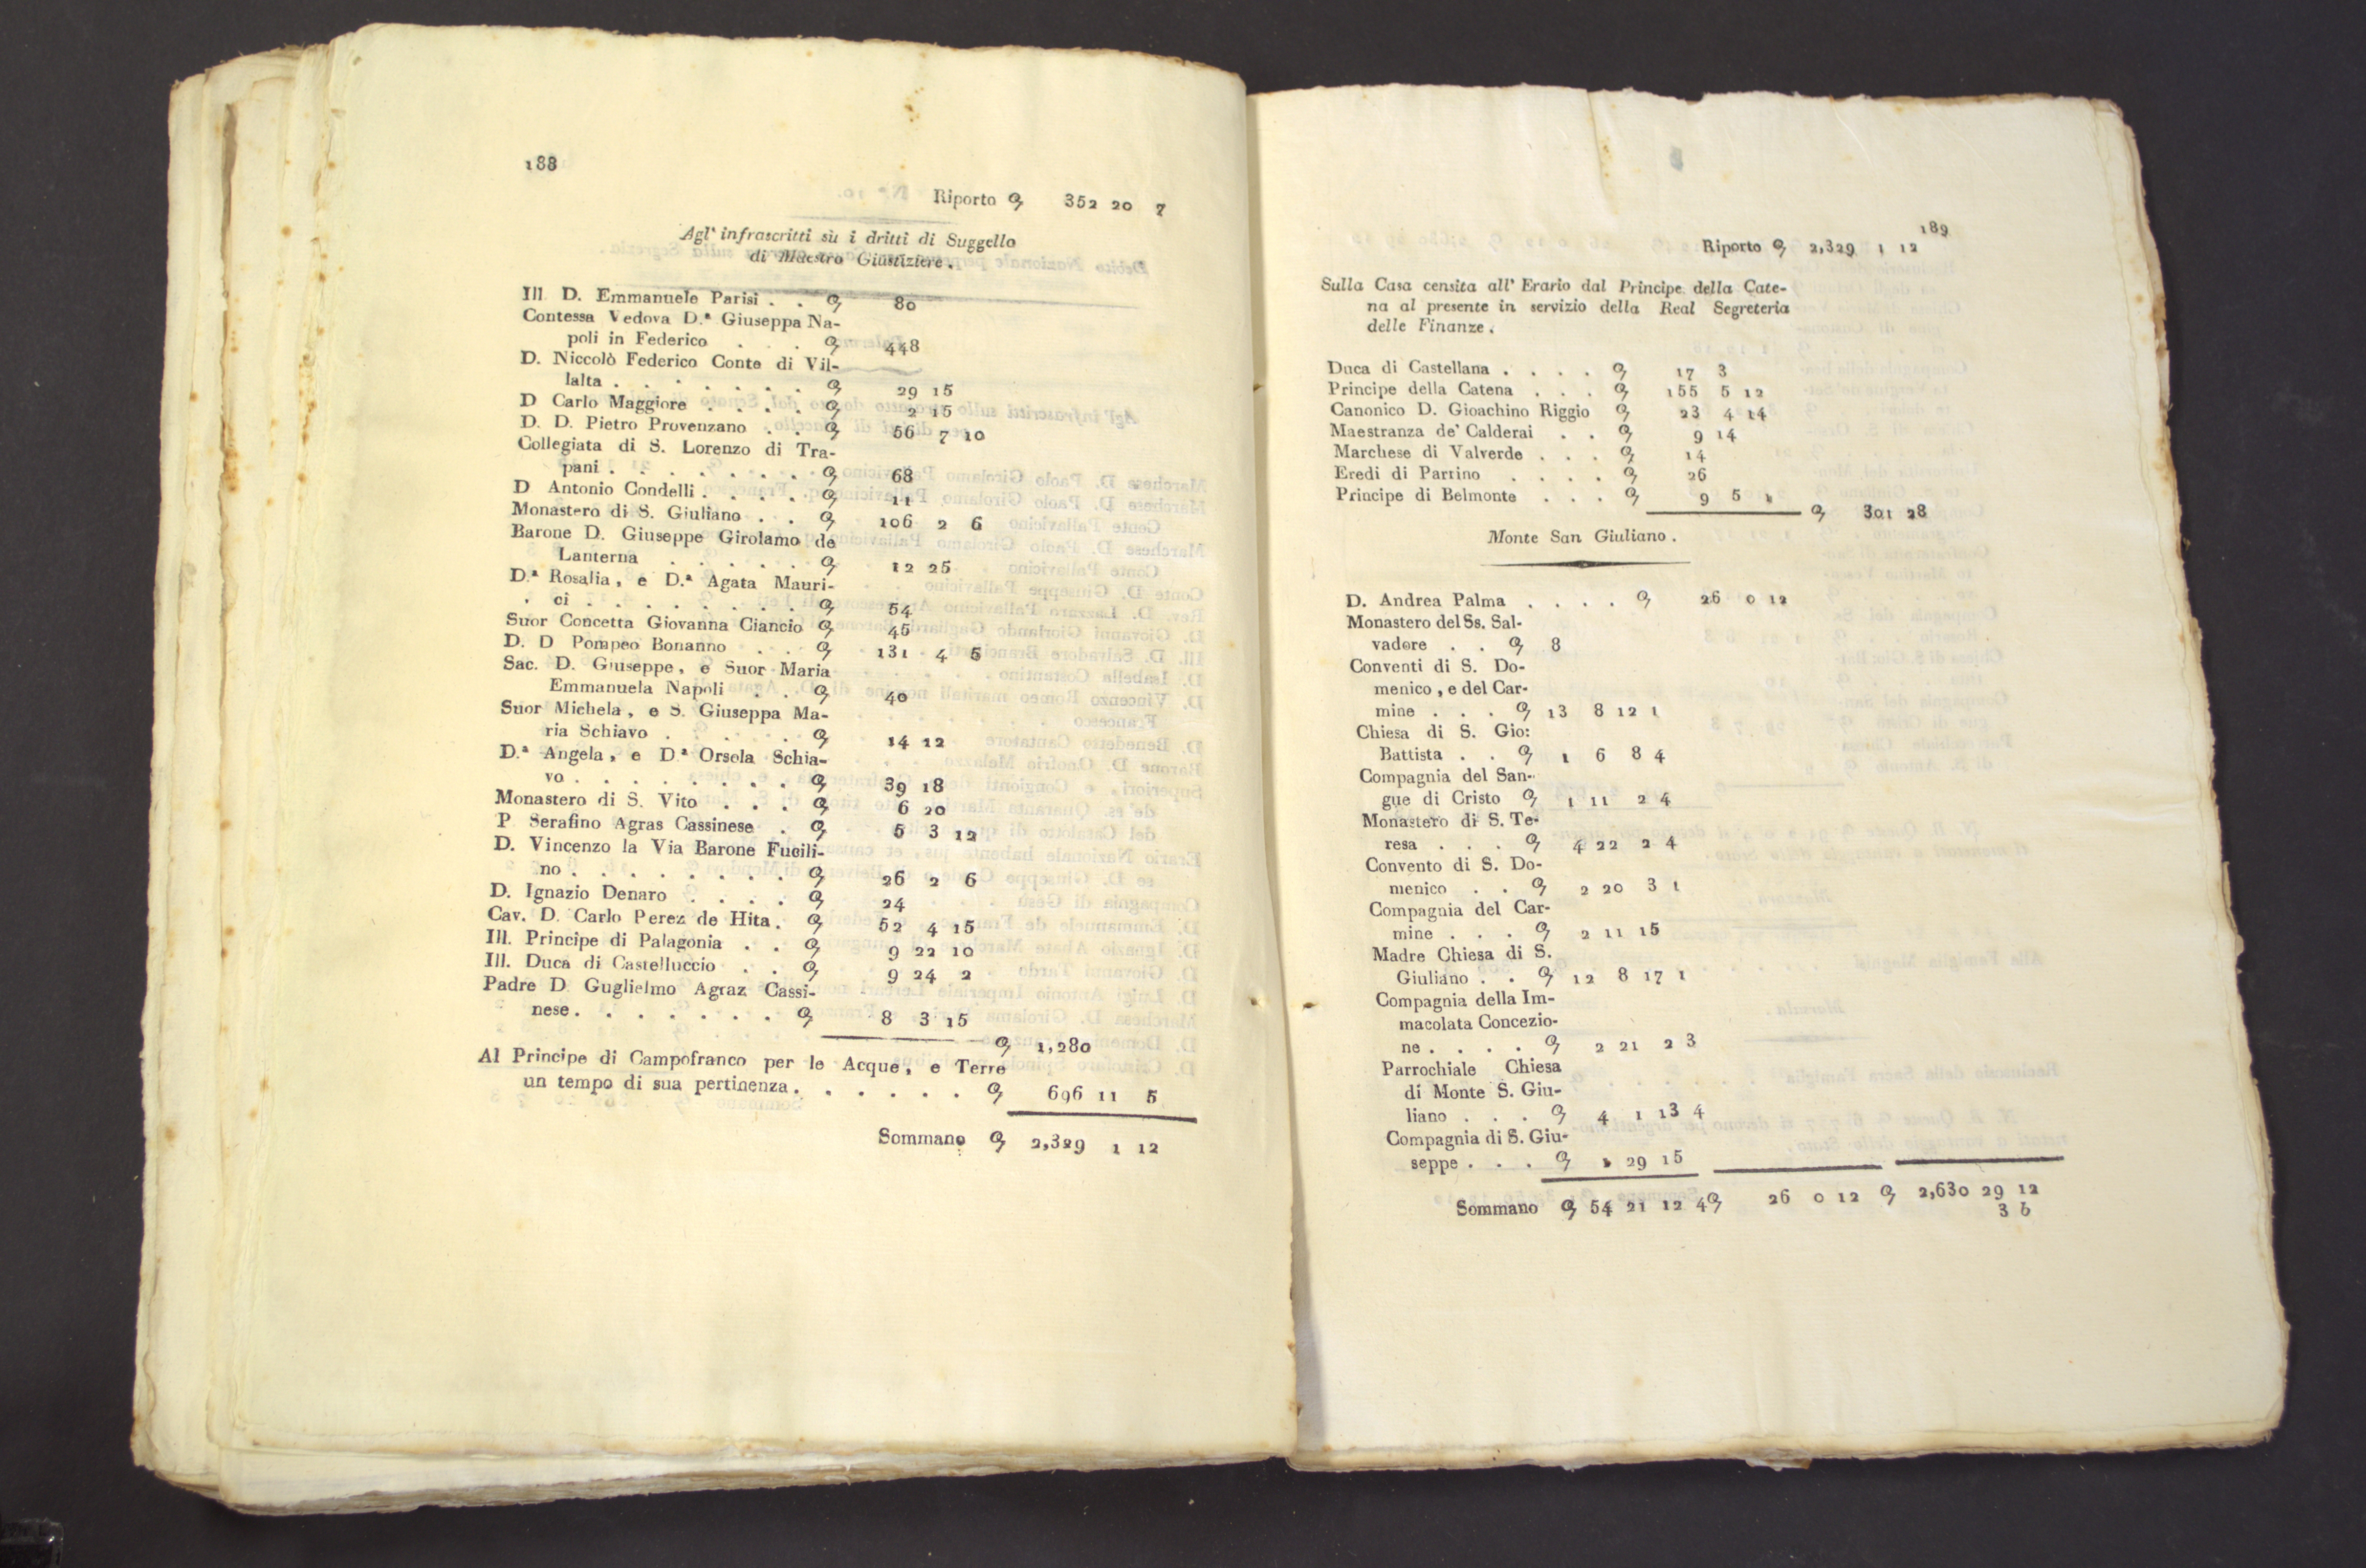 188
Riporto ꝯ 352 20 7
Agl' infrascritti sù i dritti di Suggello
di Maestro Giustiziere.
Ill D. Emmanuele Parisi . . ꝯ 80
Contessa Vedova D.ª Giuseppa Na-
poli in Federico . . . ꝯ 448
D. Niccolò Federico Conte di Vil-
lalta . . . . . . . ꝯ 29 15
D Carlo Maggiore . . . . ꝯ 2 15
D. D. Pietro Provenzano . . ꝯ 56 7 10
Collegiata di S. Lorenzo di Tra-
pani . . . . . . . ꝯ 68
D Antonio Condelli . . . . ꝯ 11
Monastero di S. Giuliano . . ꝯ 106 2 6
Barone D. Giuseppe Girolamo de
Lanterna . . . . . . ꝯ 12 25
D.ª Rosalia, e D.ª Agata Mauri-
ci . . . . . . . . ꝯ 54
Suor Concetta Giovanna Ciancio ꝯ 45
D. D Pompeo Bonanno . . ꝯ 131 4 5
Sac. D. Giuseppe, e Suor Maria
Emmanuela Napoli . . ꝯ 40
Suor Michela, e S. Giuseppa Ma-
ria Schiavo . . . . . ꝯ 14 12
D.ª Angela, e D.ª Orsola Schia-
vo . . . . . . . . ꝯ 39 18
Monastero di S. Vito . . . ꝯ 6 20
P Serafino Agras Cassinese . ꝯ 5 3 12
D. Vincenzo la Via Barone Fucili-
no . . . . . . . . ꝯ 26 2 6
D. Ignazio Denaro . . . . ꝯ 24
Cav. D. Carlo Perez de Hita . ꝯ 52 4 15
Ill. Principe di Palagonia . . ꝯ 9 22 10
Ill. Duca di Castelluccio . . ꝯ 9 24 2
Padre D Guglielmo Agraz Cassi-
nese . . . . . . . ꝯ 8 3 15
ꝯ 1,280
Al Principe di Campofranco per le Acque, e Terre
un tempo di sua pertinenza . . . . . . ꝯ 696 11 5
Sommano ꝯ 2,329 1 12
189
Riporto ꝯ 2,329 1 12
Sulla Casa censita all' Erario dal Principe della Cate-
na al presente in servizio della Real Segreteria
delle Finanze.
Duca di Castellana . . . . ꝯ 17 3
Principe della Catena . . . ꝯ 155 5 12
Canonico D. Gioachino Riggio ꝯ 23 4 14
Maestranza de' Calderai . . ꝯ 9 14
Marchese di Valverde . . . ꝯ 14
Eredi di Parrino . . . . ꝯ 26
Principe di Belmonte . . . ꝯ 9 5
ꝯ 301 28
Monte San Giuliano.
D. Andrea Palma . . . . ꝯ 26 0 12
Monastero del Ss. Sal-
vadore . . ꝯ 8
Conventi di S. Do-
menico, e del Car-
mine . . . ꝯ 13 8 12 1
Chiesa di S. Gio:
Battista . . ꝯ 1 6 8 4
Compagnia del San-
gue di Cristo ꝯ 1 11 2 4
Monastero di S. Te-
resa . . . ꝯ 4 22 2 4
Convento di S. Do-
menico . . ꝯ 2 20 3 1
Compagnia del Car-
mine . . . ꝯ 2 11 15
Madre Chiesa di S.
Giuliano . . ꝯ 12 8 17 1
Compagnia della Im-
macolata Concezio-
ne . . . . ꝯ 2 21 2 3
Parrochiale Chiesa
di Monte S. Giu-
liano . . . ꝯ 4 1 13 4
Compagnia di S. Giu-
seppe . . . ꝯ 29 15
Sommano ꝯ 54 21 12 4 ꝯ 26 0 12 ꝯ 2,630 29 12
3 6